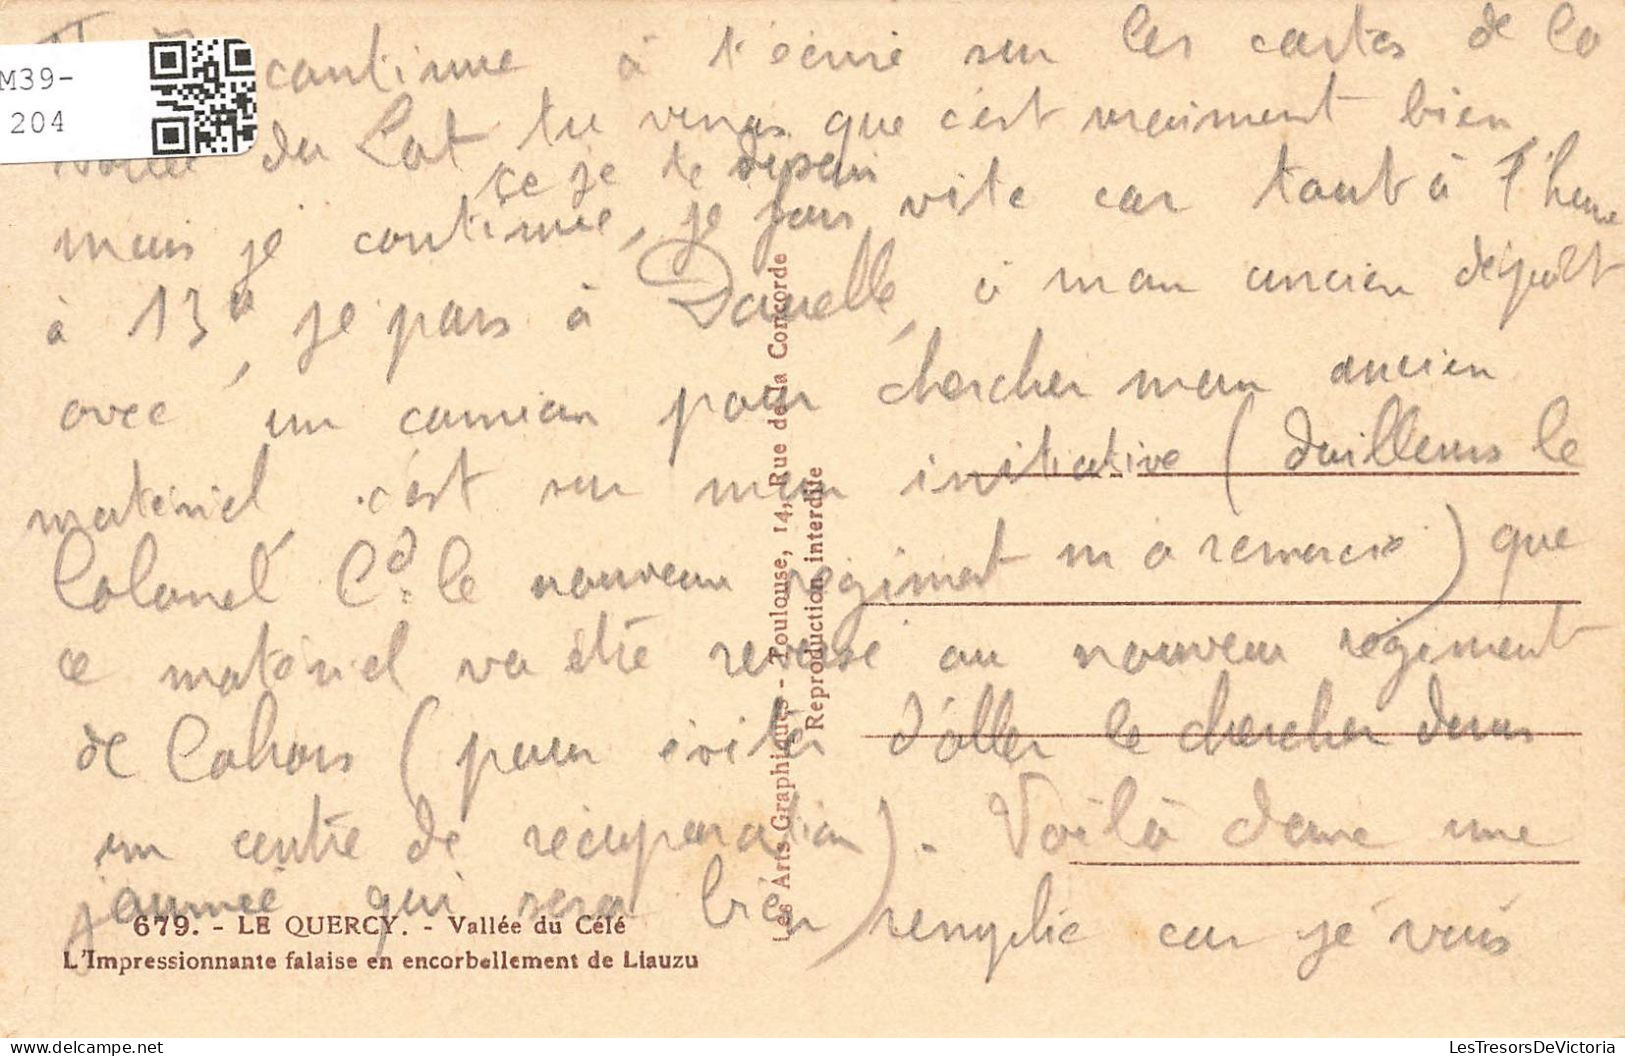 M39-
204
continue à t'écrire sur les cartes de la
vallée du Lot tu verras que c'est vraiment bien
ce je te disais
mais je continue, je fais vite car tout à l'heure
à 13h, je pars à Danelle, à mon ancien dépôt
avec un camion pour chercher mon ancien
matériel, c'est sur mon initiative (dailleurs le
Colonel Cd. le nouveau régiment m'a remercié) que
ce matériel va être reversé au nouveau régiment
de Cahors (pour éviter d'aller le chercher dans
un centre de récupération). Voilà donc une
journée qui sera bien remplie car je vais
679. - LE QUERCY. - Vallée du Célé
L'Impressionnante falaise en encorbellement de Liauzu
Les Arts Graphiques - Toulouse, 14, Rue de la Concorde
Reproduction interdite
LesTresorsDeVictoria